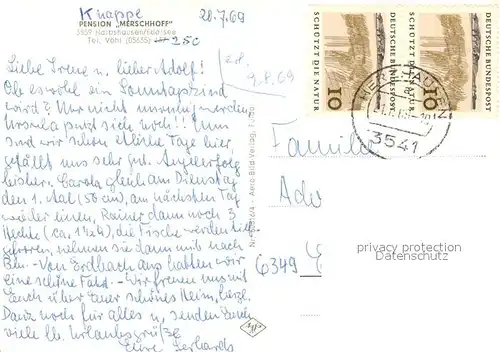 Knappe
28.7.69
PENSION "MERSCHHOFF"
3559 Harbshausen/Edersee
Tel. Vöhl (05635) 250
Liebe Irene u. lieber Adolf!
9.8.69
Ob es wohl ein Sonntagskind
wird? Nur nicht nervös werden
Ursula putzt sich noch!! Nun
sind wir schon etliche Tage hier,
gefällt uns sehr gut. Angelerfolg
bisher. Carola gleich am Dienstag
den 1. Aal (50 cm), am nächsten Tag
wieder einen, Rainer dann noch 3
Hechte, die Fische werden tief
gefroren, nehmen sie dann mit nach
Bln. - Von Erdbach aus hatten wir
eine schöne Fahrt. - Wir freuen uns mit
Euch über Euer schönes Heim, herzl.
Dank noch für alles u. senden Euch
viele lb. Urlaubsgrüße
Eure Gerhards
Aero-Bild-Verlag
SCHÜTZT DIE NATUR
10
DEUTSCHE BUNDESPOST
SCHÜTZT DIE NATUR
10
DEUTSCHE BUNDESPOST
HERZHAUSEN
3541
Familie
6349
privacy protection
oldthing.de